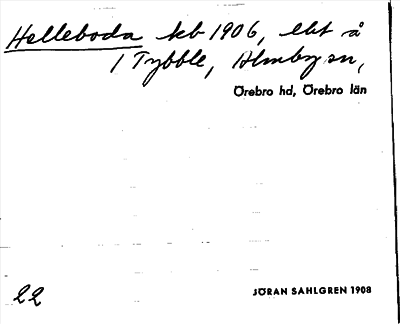 Helleboda kb 1906, ebt å
1 Tybble, Almby sn,
Örebro hd, Örebro län
22
JÖRAN SAHLGREN 1908